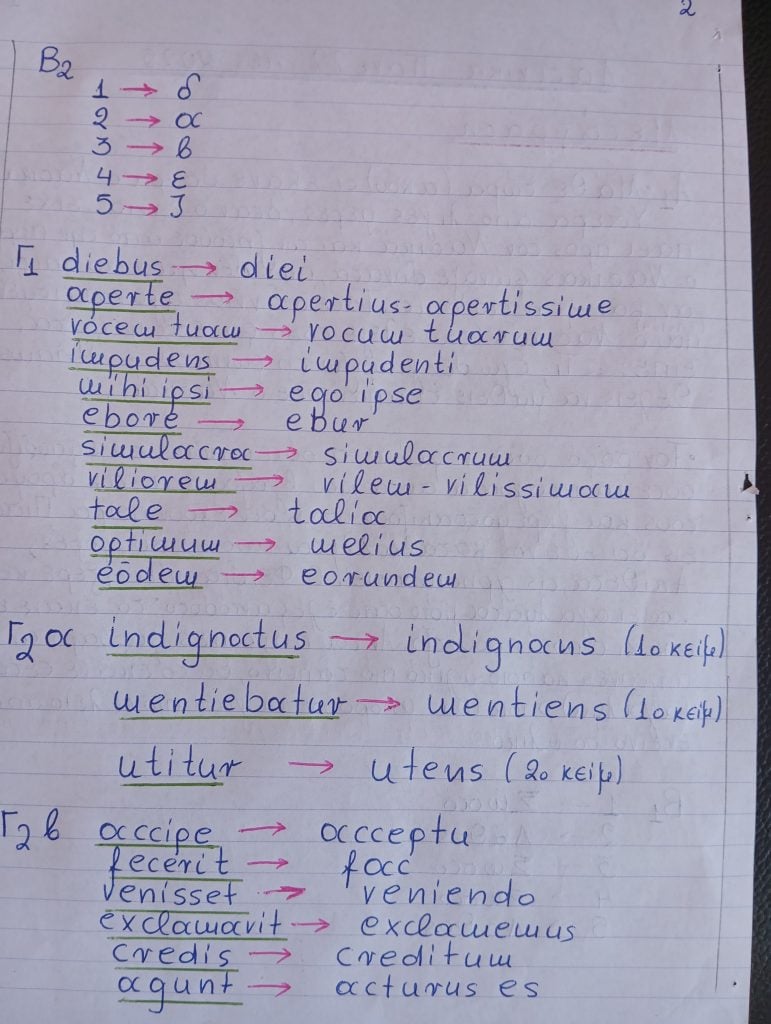 2
B2
1 → δ
2 → α
3 → β
4 → ε
5 → ζ
Γ1 diebus → diei
aperte → apertius - apertissime
vocem tuam → vocum tuarum
impudens → impudenti
mihi ipsi → ego ipse
ebore → ebur
simulacra → simulacrum
viliorem → vilem - vilissimam
tale → talia
optimum → melius
eōdem → eorundem
Γ2 α indignatus → indignans (1ο κείμ)
mentiebatur → mentiens (1ο κείμ)
utitur → utens (2ο κείμ)
Γ2 β accipe → acceptu
fecerit → fac
venisset → veniendo
exclamavit → exclamemus
credis → creditum
agunt → acturus es